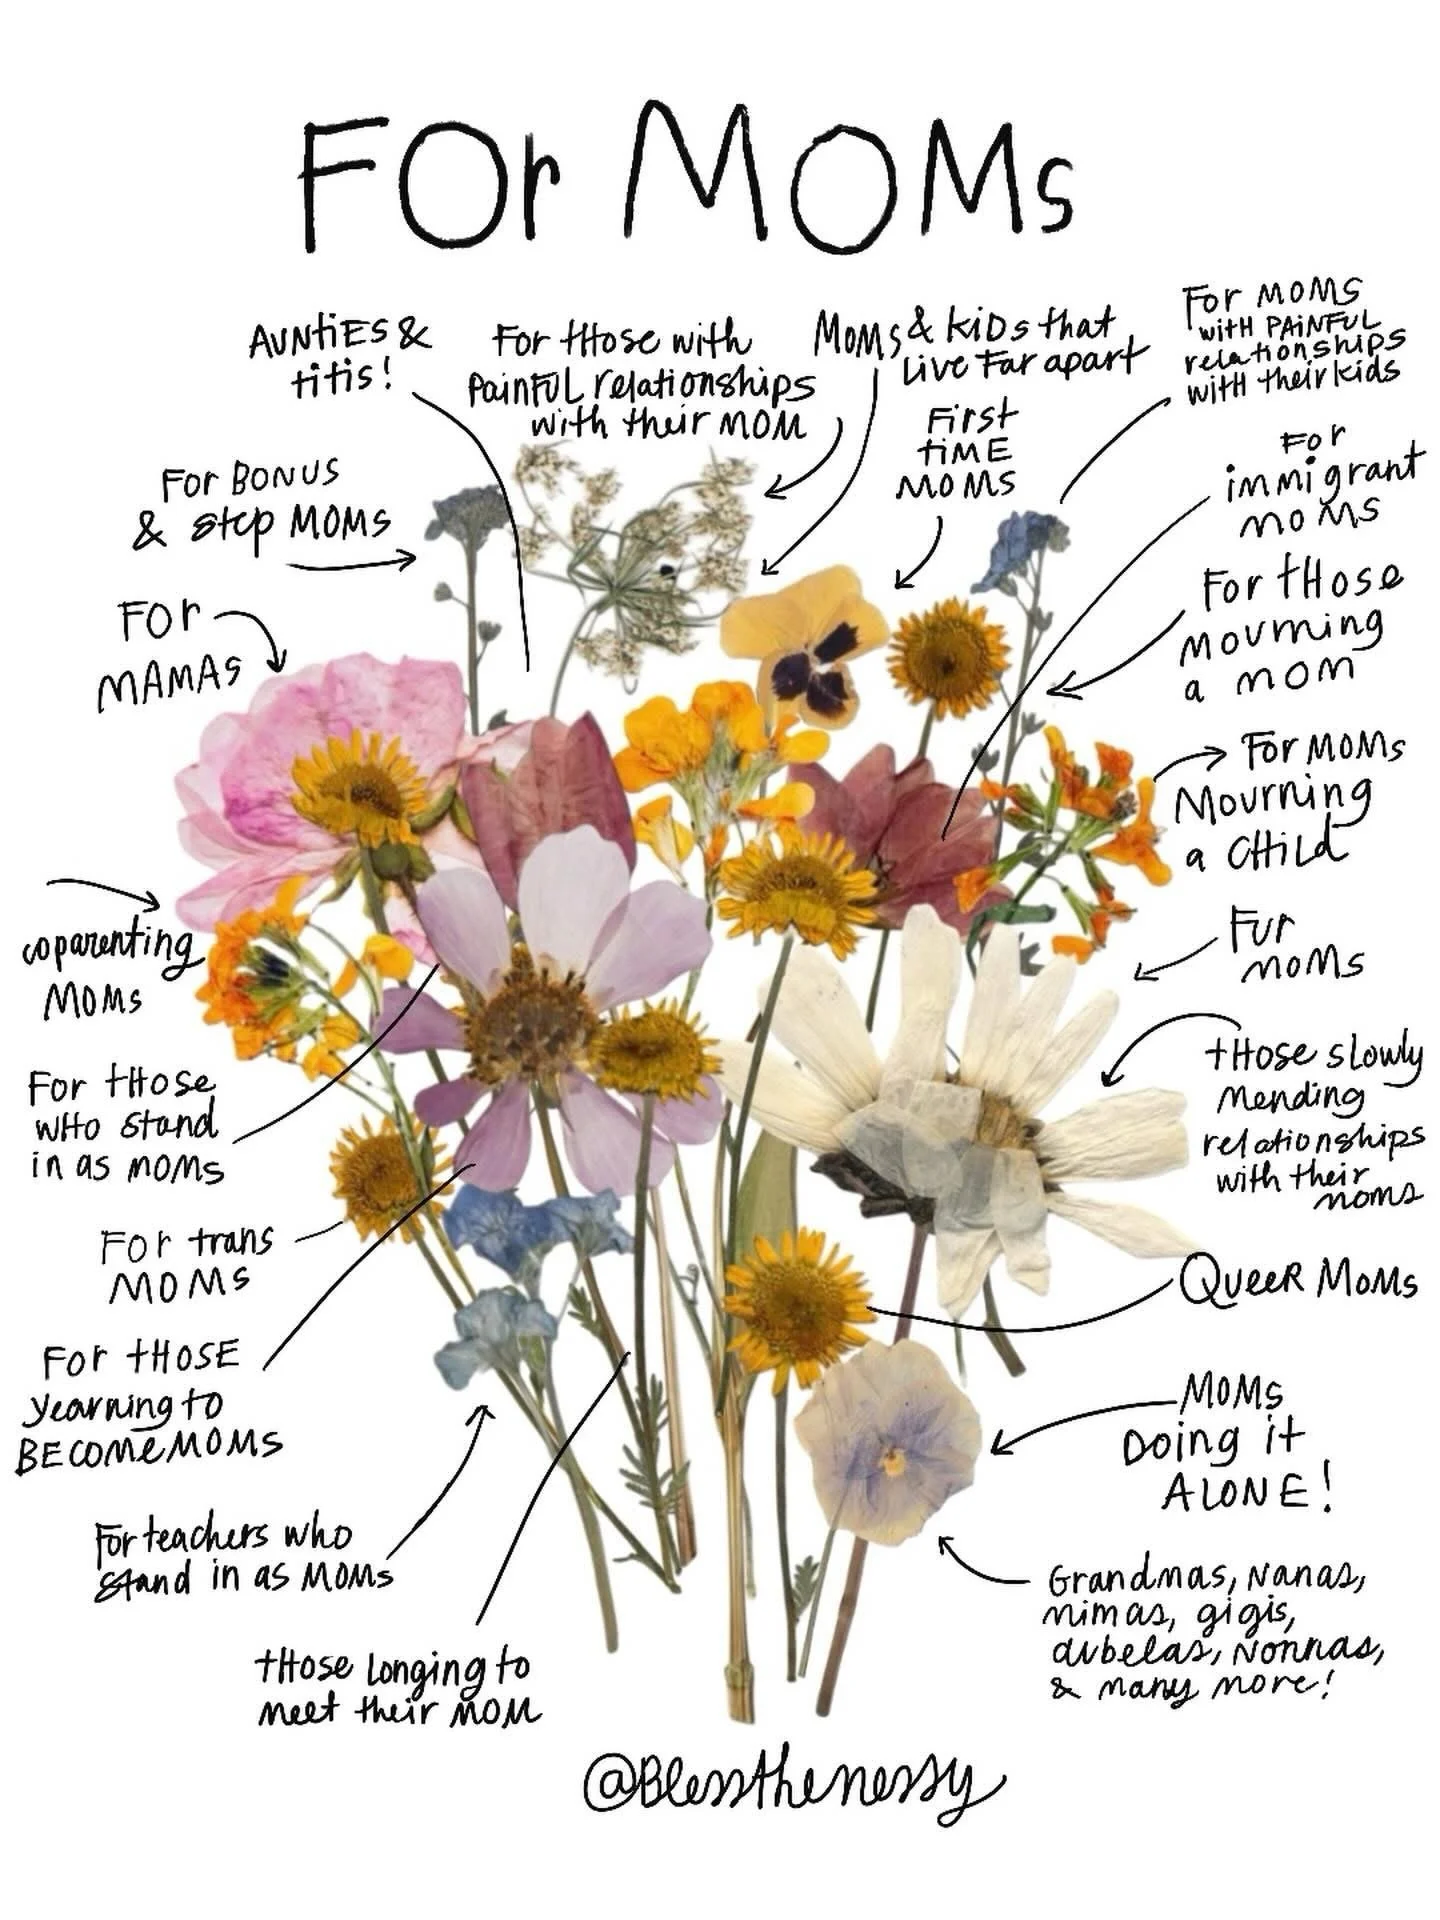 For MOMs
AUNTiES &
titis!
For tHose with
PainFUL relationships
with their MOM
MOMs & kiDs that
Live Far apart
For MOMS
witH PAiNFUL
relationships
witH their kids
First
tiME
MOMS
For BONUS
& step MOMS
For
immigrant
moMS
For
MAMAS
For tHose
mourning
a mom
For MOMs
Mourning
a CHiLd
coparenting
MOMs
Fur
moMs
tHose slowly
Mending
relationships
with their
moms
For tHose
wHo stand
in as moms
For trans
MOMS
QueeR MoMs
For tHOSE
yearning to
BEcomeMOMS
MOMs
Doing it
ALONE!
For teachers who
stand in as MOMs
Grandmas, Nanas,
mimas, gigis,
aubelas, Nonnas,
& many more!
tHose Longing to
meet their MOM
@Blessthenessy